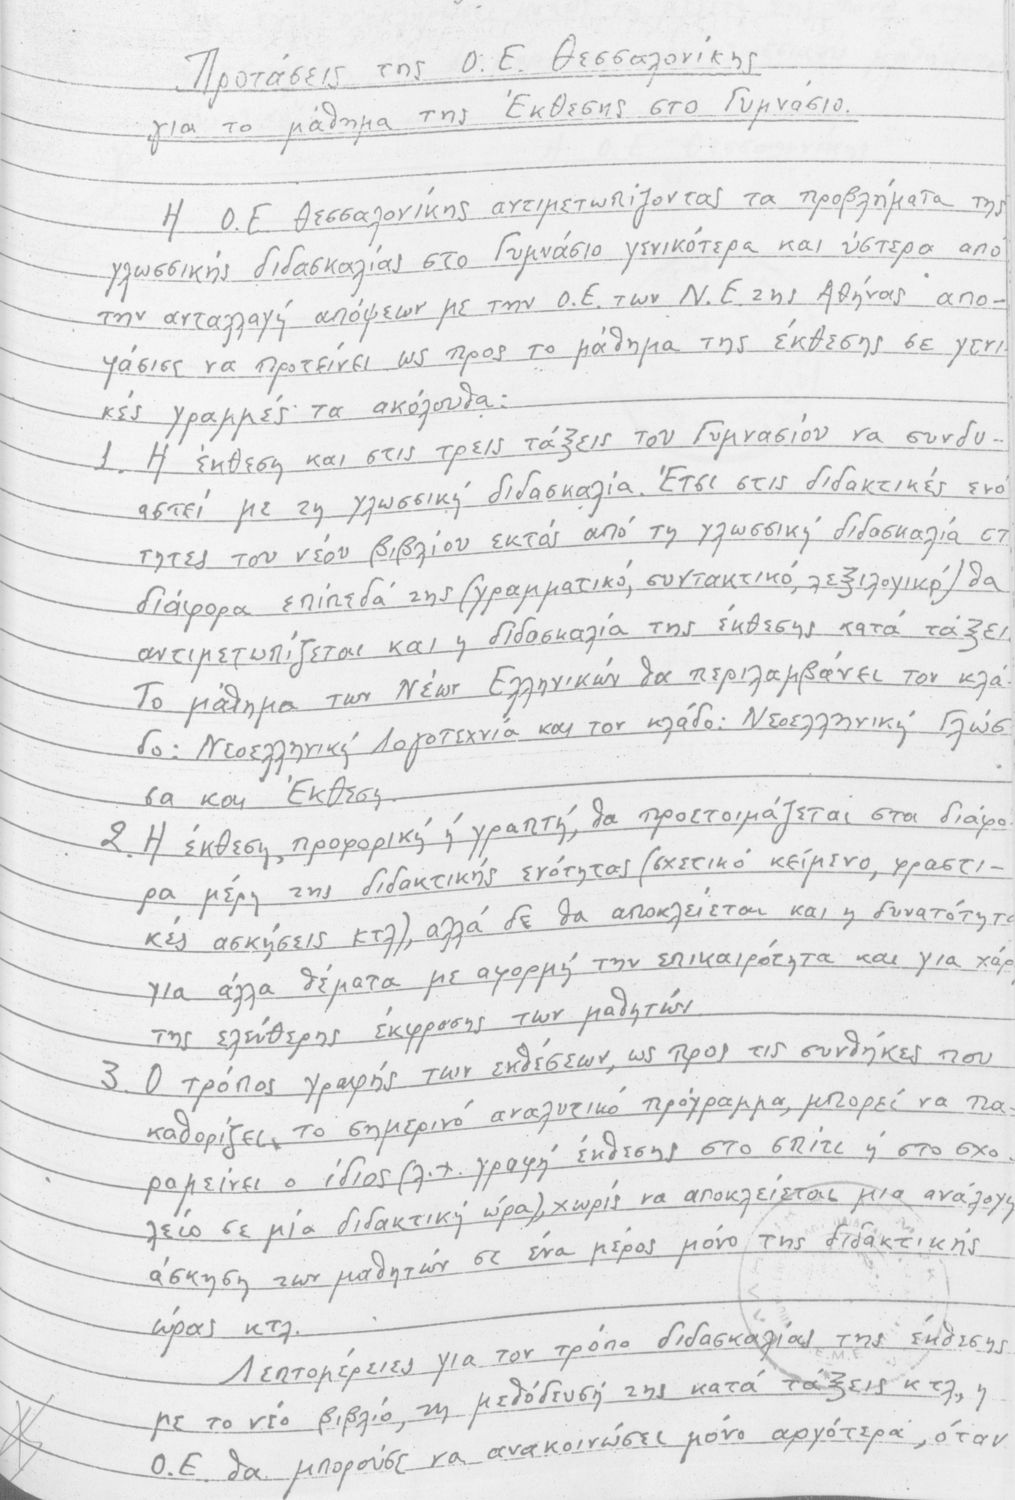 Προτάσεις της Ο.Ε. Θεσσαλονίκης
για το μάθημα της Έκθεσης στο Γυμνάσιο.
Η Ο.Ε Θεσσαλονίκης αντιμετωπίζοντας τα προβλήματα της
γλωσσικής διδασκαλίας στο Γυμνάσιο γενικότερα και ύστερα από
την ανταλλαγή απόψεων με την Ο.Ε. των Ν.Ε. της Αθήνας απο-
φάσισε να προτείνει ως προς το μάθημα της έκθεσης σε γενι-
κές γραμμές τα ακόλουθα:
1. Η έκθεση και στις τρεις τάξεις του Γυμνασίου να συνδυ-
αστεί με τη γλωσσική διδασκαλία. Έτσι στις διδακτικές ενό
τητες του νέου βιβλίου εκτός από τη γλωσσική διδασκαλία στ
διάφορα επίπεδά της (γραμματικό, συντακτικό, λεξιλογικό) θα
αντιμετωπίζεται και η διδασκαλία της έκθεσης κατά τάξει
Το μάθημα των Νέων Ελληνικών θα περιλαμβάνει τον κλά-
δο: Νεοελληνική Λογοτεχνία και τον κλάδο: Νεοελληνική Γλώσ
σα και Έκθεση.
2. Η έκθεση, προφορική ή γραπτή, θα προετοιμάζεται στα διάφο-
ρα μέρη της διδακτικής ενότητας (σχετικό κείμενο, φραστι-
κές ασκήσεις κτλ), αλλά δε θα αποκλείεται και η δυνατότητα
για άλλα θέματα με αφορμή την επικαιρότητα και για χάρ
της ελεύθερης έκφρασης των μαθητών
3. Ο τρόπος γραφής των εκθέσεων, ως προς τις συνθήκες που
καθορίζει το σημερινό αναλυτικό πρόγραμμα, μπορεί να πα-
ραμείνει ο ίδιος (λ.χ. γραφή έκθεσης στο σπίτι ή στο σχο-
λείο σε μία διδακτική ώρα), χωρίς να αποκλείεται μια ανάλογη
άσκηση των μαθητών σε ένα μέρος μόνο της διδακτικής
ώρας κτλ.
Λεπτομέρειες για τον τρόπο διδασκαλίας της έκθεσης
με το νέο βιβλίο, τη μεθόδευσή της κατά τάξεις κτλ, η
Ο.Ε. θα μπορούσε να ανακοινώσει μόνο αργότερα, όταν